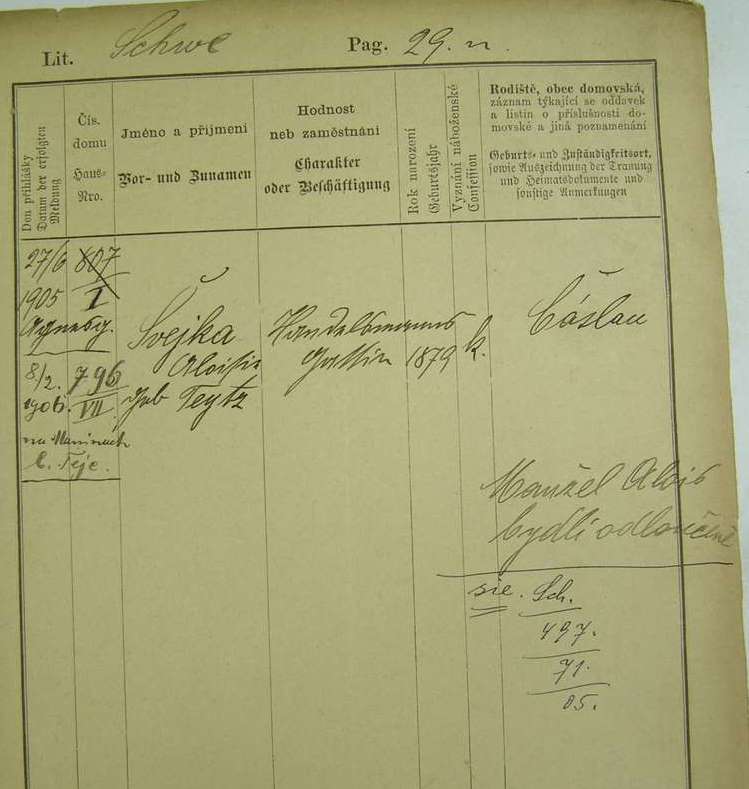 Lit. Schwe Pag. 29. n.
Don přihlášky
Datum der erfolgten
Meldung
Čís.
domu
Haus-
Nro.
Jméno a příjmení
Vor- und Zunamen
Hodnost
neb zaměstnání
Charakter
oder Beschäftigung
Rok narození
Geburtsjahr
Vyznání náboženské
Confession
Rodiště, obec domovská,
záznam týkající se oddavek
a listin o příslušnosti do-
movské a jiná poznamenání
Geburts- und Zuständigkeitsort,
sowie Auszeichnung der Trauung
und Heimatsdokumente und
sonstige Anmerkungen
27/6 807
1905 I
Švejka Handelsmanns Cáslau
Aloisie Gattin 1879 k.
8/2. 796
1906. VII geb Teytz
na Maninách
Manžel Alois
bydlí odloučeně
sie. Sch.
497.
71.
05.